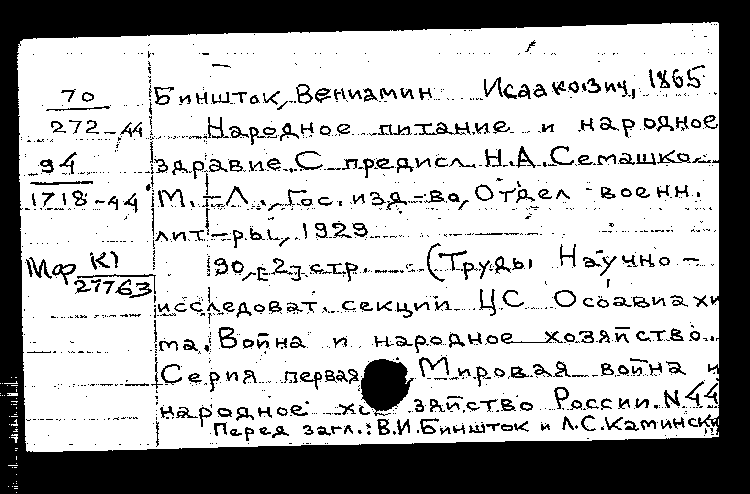 70
272-44
94
1718-44
Мф К1
27763
Биншток, Вениамин Исаакович, 1865
Народное питание и народное
здравие. С предисл. Н.А. Семашко.
М.-Л., Гос. изд-во, Отдел военн.
лит-ры, 1929
90, [2] стр. (Труды Научно-
исследоват. секции ЦС Осоавиахи
ма. Война и народное хозяйство.
Серия первая Мировая война и
народное хозяйство России. N 44
Перед загл.: В.И. Биншток и Л.С. Камински